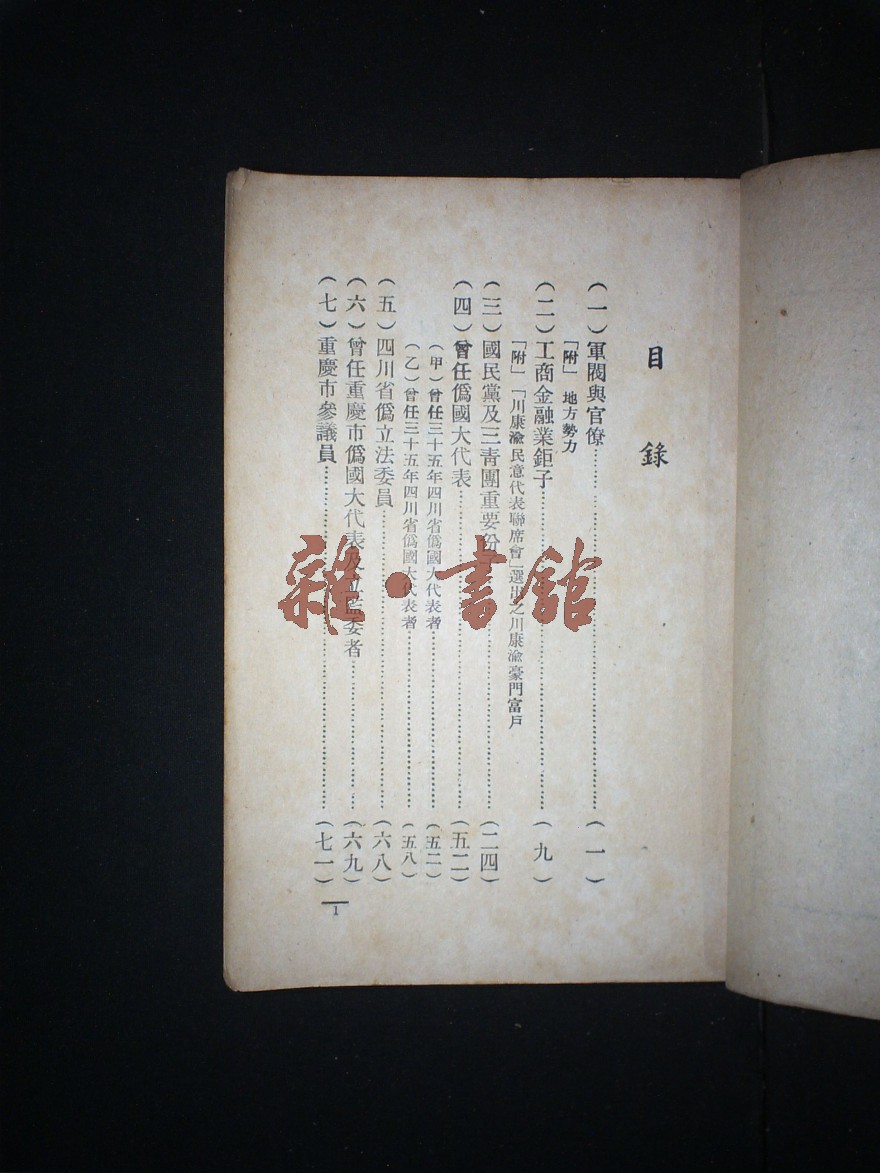 目錄
(一)軍閥與官僚……(一)
「附」 地方勢力
(二)工商金融業鉅子……(九)
「附」「川康渝民意代表聯席會」選出之川康渝豪門富戶
(三)國民黨及三青團重要份子……(二四)
(四)曾任僞國大代表……(五二)
(甲)曾任三十五年四川省僞國大代表者……(五二)
(乙)曾任三十五年四川省僞國大代表者……(五八)
(五)四川省僞立法委員……(六八)
(六)曾任重慶市僞國大代表及立監委者……(六九)
(七)重慶市參議員……(七一)
1
雜·書館